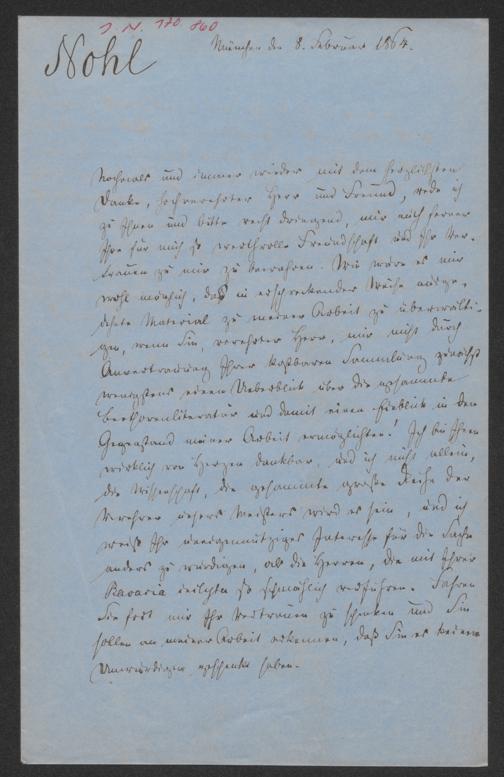 J. N. 170 860
Nohl
München den 8. Februar 1864.
Nochmals und immer wieder mit dem herzlichsten
Danke, hochverehrter Herr und Freund, rede ich
zu Ihnen und bitte recht dringend, mir auch ferner
Ihre für mich so werthvolle Freundschaft und Ihr Ver-
trauen zu mir zu bewahren. Wie wäre es mir
wohl möglich, das in erschreckender Weise ausge-
dehnte Material zu meiner Arbeit zu überwälti-
gen, wenn Sie, verehrter Herr, mir nicht durch
Anvertrauung Ihrer kostbaren Sammlung zunächst
wenigstens einen Ueberblick über die gesammte
Beethovenliteratur und damit einen Einblick in den
Gegenstand meiner Arbeit ermöglichten! Ich bin Ihnen
wirklich von Herzen dankbar, und ich nicht allein,
die Wissenschaft, die gesammte große Reihe der
Verehrer unsers Meisters wird es sein, und ich
weiß Ihr uneigennütziges Interesse für die Sache
anders zu würdigen, als die Herren, die mit Ihrer
so schmählich verfuhren. Fahren
Sie fort mir Ihr Vertrauen zu schenken und Sie
sollen an meiner Arbeit erkennen, daß Sie es keinem
Unwürdigen geschenkt haben.